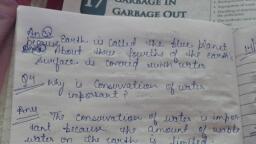 17
GARBAGE IN
GARBAGE OUT
Ans
because Earth is called the blue planet
About three fourths of the earth
surface is covered with water
Q4 Why is Conservation of water
important?
Ans4
The Conservation of water is impor
tant because the amount of usable
water on the earth is limited